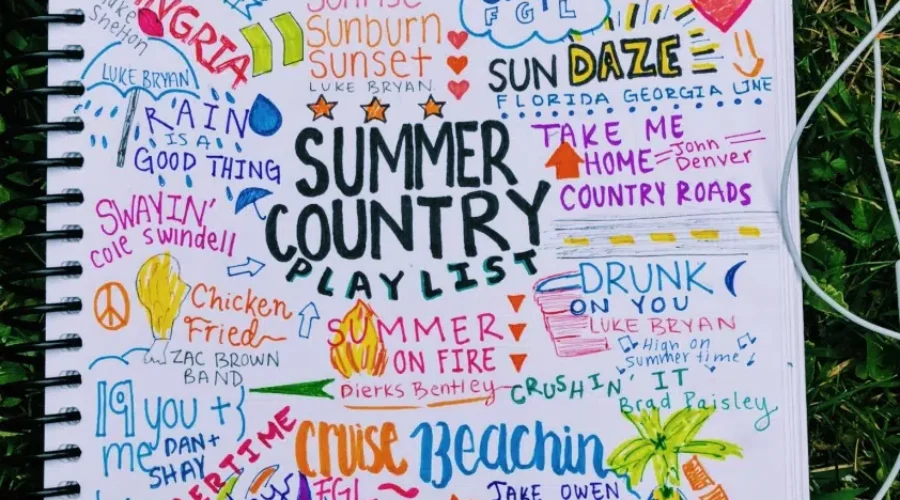 Sunrise
Blake
Shelton
Sunburn
Sunset
LUKE BRYAN
FGL
SUN DAZE
FLORIDA GEORGIA LINE
LUKE BRYAN
RAIN
IS A
GOOD THING
SUMMER
COUNTRY
PLAYLIST
TAKE ME
HOME
John
Denver
COUNTRY ROADS
SWAYIN'
Cole Swindell
Chicken
Fried
ZAC BROWN
BAND
SUMMER
ON FIRE
Dierks Bentley
DRUNK
ON YOU
LUKE BRYAN
High on
summer time
CRUSHIN' IT
Brad Paisley
19 you +
me
DAN +
SHAY
Cruise
FGL
Beachin
JAKE OWEN